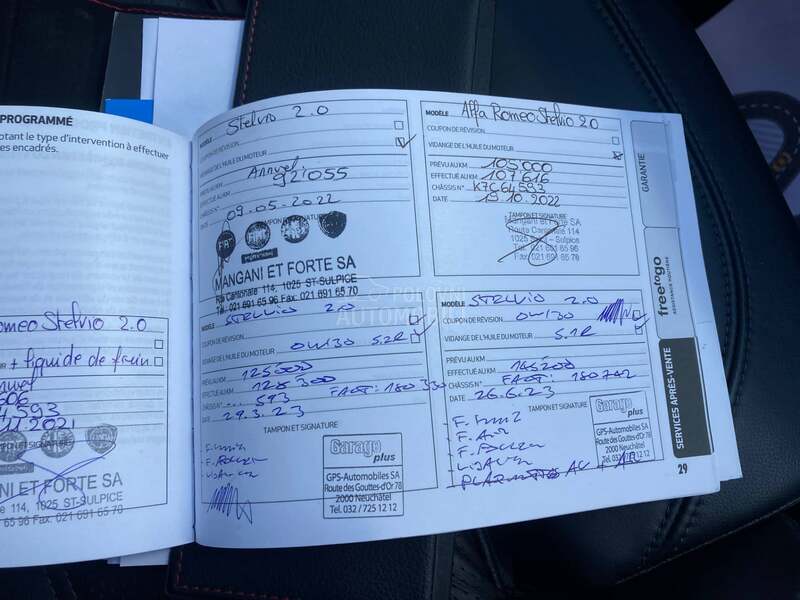 PROGRAMMÉ
otant le type d'intervention à effectuer
es encadrés.
omeo Stelvio 2.0
+ liquide de frein
4593
11.2021
ANI ET FORTE SA
114, 1025 ST-SULPICE
65 96 Fax. 021 691 65 70
MODÈLE Stelvio 2.0
COUPON DE RÉVISION
VIDANGE DE L'HUILE DU MOTEUR
Annuel
PRÉVU AU KM
EFFECTUÉ AU KM 92'055
CHÂSSIS N°
DATE 09-05-2022
TAMPON ET SIGNATURE
FIAT
MANGANI ET FORTE SA
Rte Cantonale 114, 1025 ST-SULPICE
Tél. 021 691 65 96 Fax. 021 691 65 70
MODÈLE Alfa Romeo Stelvio 2.0
COUPON DE RÉVISION
VIDANGE DE L'HUILE DU MOTEUR
PRÉVU AU KM 105000
EFFECTUÉ AU KM 107616
CHÂSSIS N° K7C64593
DATE 19.10.2022
TAMPON ET SIGNATURE
Mangani et Forte SA
Route Cantonale 114
1025 - Sulpice
Tél. 021 691 65
Fax. 021 691 65
MODÈLE STELVIO 2.0
COUPON DE RÉVISION
VIDANGE DE L'HUILE DU MOTEUR 0W30 5.2l
PRÉVU AU KM 125000
EFFECTUÉ AU KM 128300
CHÂSSIS N° ... 593 FACT: 180 330
DATE 29.3.23
TAMPON ET SIGNATURE
Garage plus
GPS-Automobiles SA
Route des Gouttes-d'Or 78
2000 Neuchâtel
Tel. 032 / 725 12 12
MODÈLE STELVIO 2.0
COUPON DE RÉVISION 0W30
VIDANGE DE L'HUILE DU MOTEUR 5.1l
PRÉVU AU KM
EFFECTUÉ AU KM 145200
CHÂSSIS N° FACT: 180742
DATE 26.6.23
TAMPON ET SIGNATURE
Garage plus
GPS-Automobiles SA
Route des Gouttes-d'Or 78
2000 Neuchâtel
Tel. 032 / 725 12 12
29
GARANTIE
freetogo
SERVICES APRÈS-VENTE
POLOVNI
AUTOMOBILI